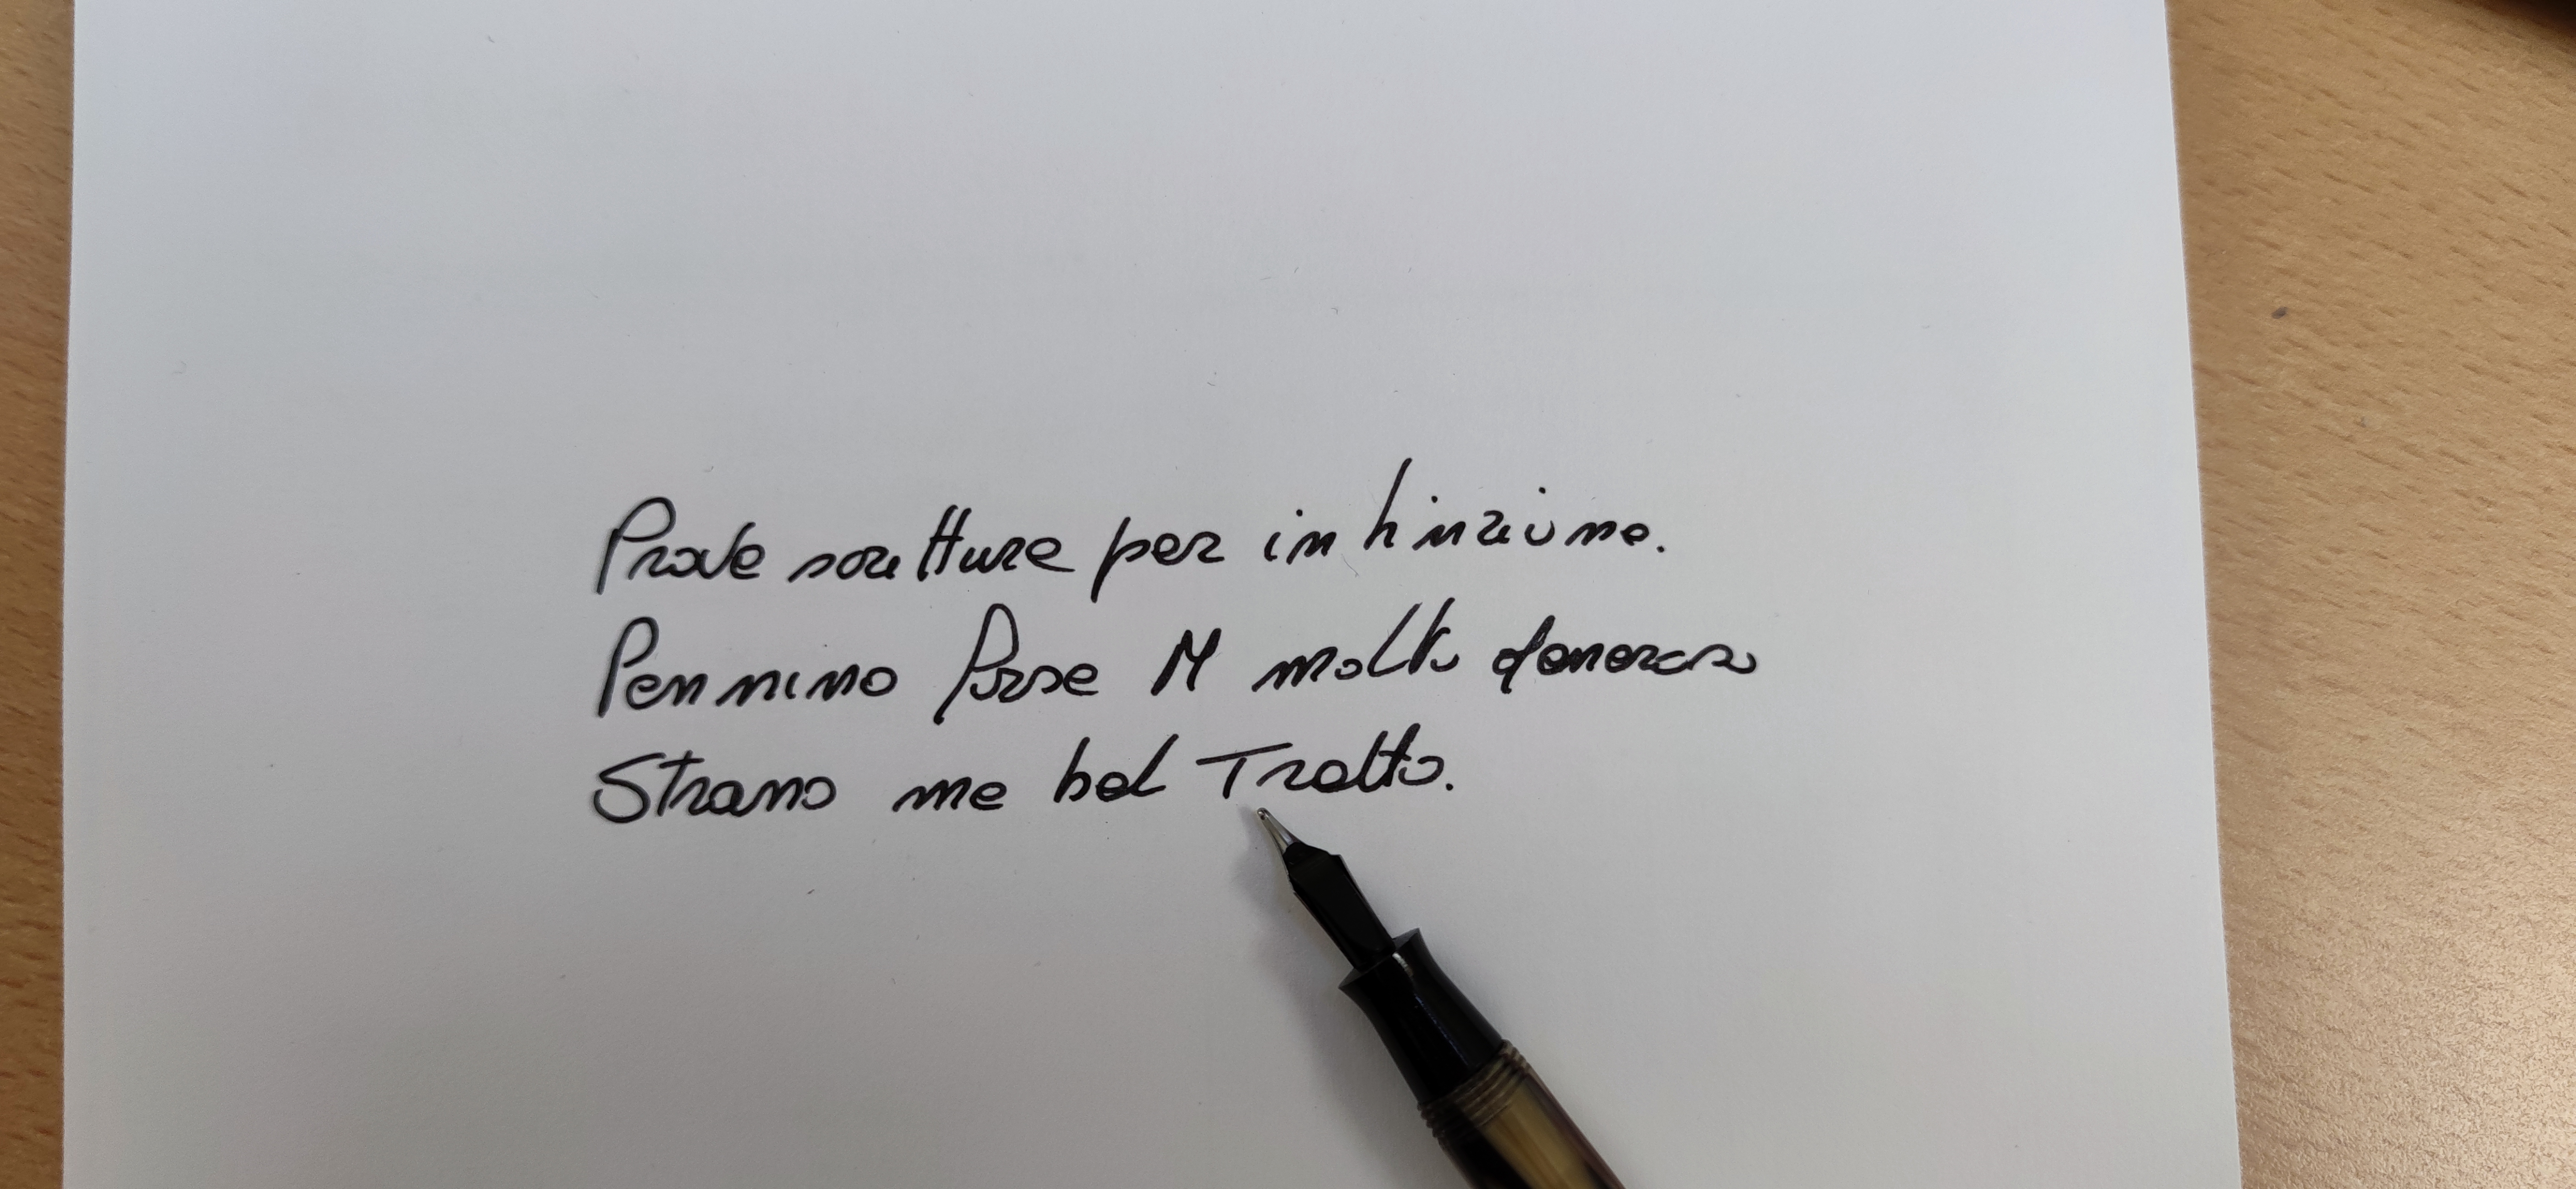 Prova scrittura per intinzione.
Pennino Forse M molto generoso
Strano ma bel Tratto.